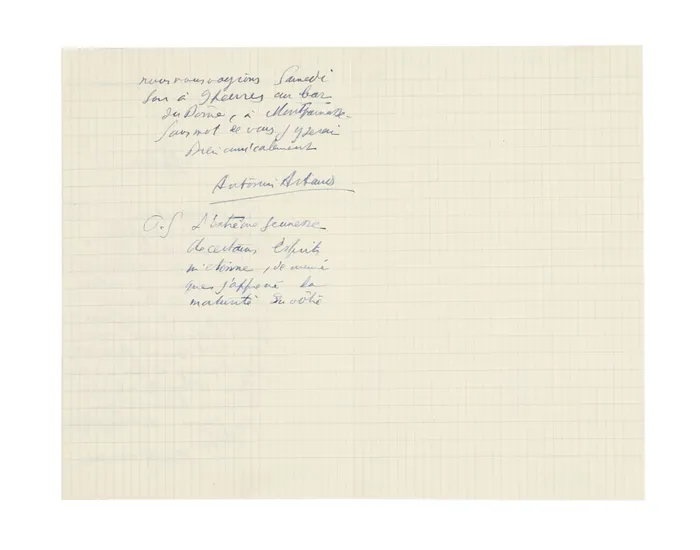 nous nous voyions Samedi
soir à 9 heures au bar
du Dôme, à Montparnasse.
Sans mot de vous j'y serai
Bien amicalement
Antonin Artaud
P.S L'extrême jeunesse
de certains Esprits
m'étonne, de même
que j'affirme la
maturité du vôtre